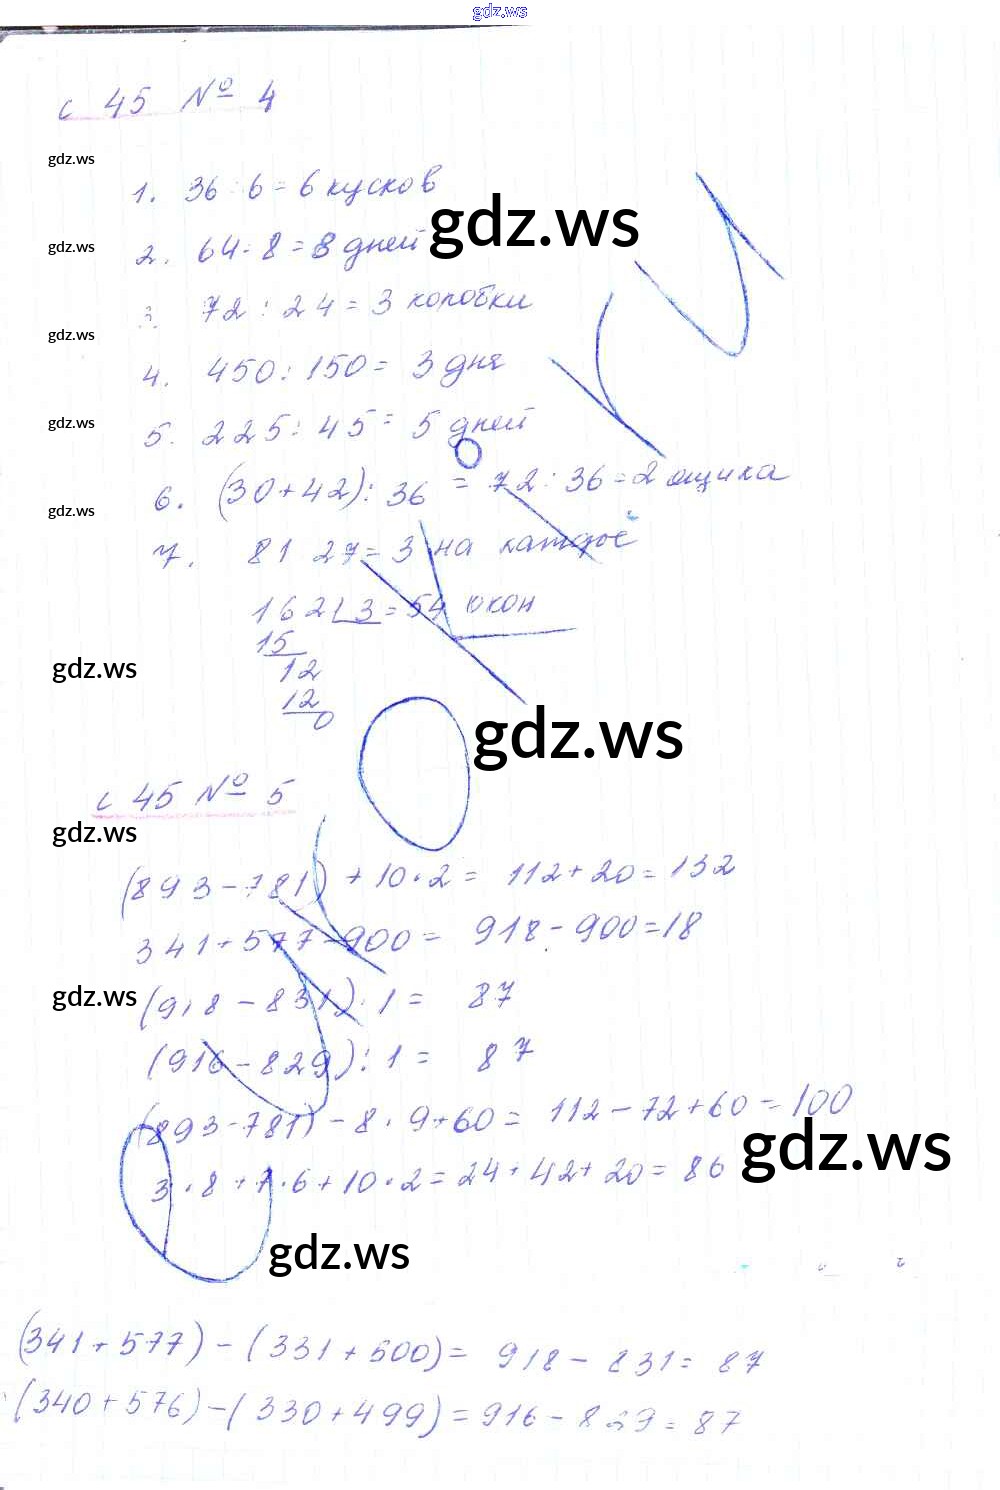 gdz.ws
с 45 № 4
gdz.ws
1. 36 : 6 = 6 кусков
gdz.ws
gdz.ws
2. 64 : 8 = 8 дней
3. 72 : 24 = 3 коробки
gdz.ws
4. 450 : 150 = 3 дня
gdz.ws
5. 225 : 45 = 5 дней
6. (30 + 42) : 36 = 72 : 36 = 2 ящика
gdz.ws
7. 81 27 = 3 на каждое
162 | 3 = 54 окон
15
12
gdz.ws
12
0
gdz.ws
с 45 № 5
gdz.ws
(893 - 781) + 10 · 2 = 112 + 20 = 132
341 + 577 - 900 = 918 - 900 = 18
gdz.ws
(918 - 831) : 1 = 87
(916 - 829) : 1 = 87
(893 - 781) - 8 · 9 + 60 = 112 - 72 + 60 = 100
gdz.ws
3 · 8 + 7 · 6 + 10 · 2 = 24 + 42 + 20 = 86
gdz.ws
(341 + 577) - (331 + 500) = 918 - 831 = 87
(340 + 576) - (330 + 499) = 916 - 829 = 87